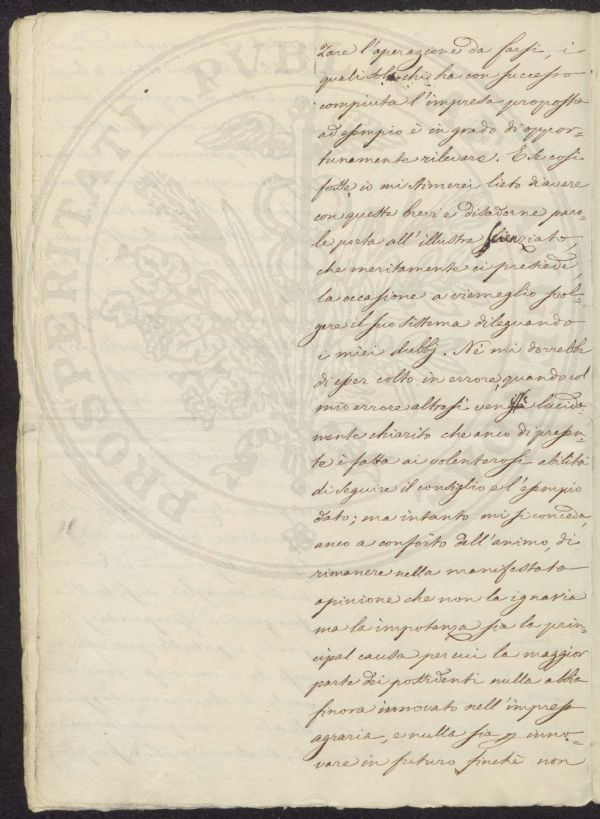 zare l'operazione da farsi, i
quali solo chi ha con successo
compiuta l'impresa proposta
ad esempio è in grado di oppor-
tunamente rilevare. E se così
fosse, io mi stimerei lieto di avere
con queste brevi e disadorne paro-
le porta all'illustre scienziato,
che meritamente ci presiede,
la occasione a viemeglio svol-
gere il suo sistema dileguando
i miei dubbj. Nè mi dorrebbe
di esser colto in errore, quando col
mio errore altresì venisse lucida-
mente chiarito che anco di presen-
te è fatta ai volenterosi abilità
di seguire il consiglio e l'esempio
dato; ma intanto mi si conceda,
anco a conforto dell'animo, di
rimanere nella manifestata
opinione che non la ignavia
ma la impotenza sia la prin-
cipal causa per cui la maggior
parte dei possidenti nulla abbia
finora innovato nell'impresa
agraria, e nulla sia p inno-
vare in futuro finchè non
PROSPERITATI PUBLICAE